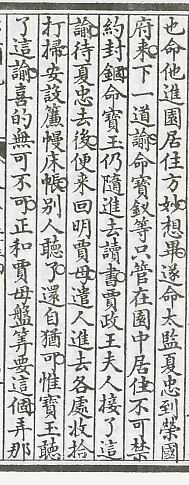 也命他進園居住方妙想畢遂命太監夏忠到榮國
府來下一道諭命寶釵等只管在園中居住不可禁
約封錮命寶玉仍隨進去讀書賈政王夫人接了這
諭待夏忠去後便來回明賈母遣人進去各處收拾
打掃安設簾幔床帳别人聽了還自猶可惟寶玉聽
了這諭喜的無可不可正和賈母盤筭要這個弄那